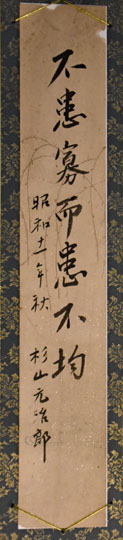 不患寡而患不均
昭和十一年秋 杉山元治郎